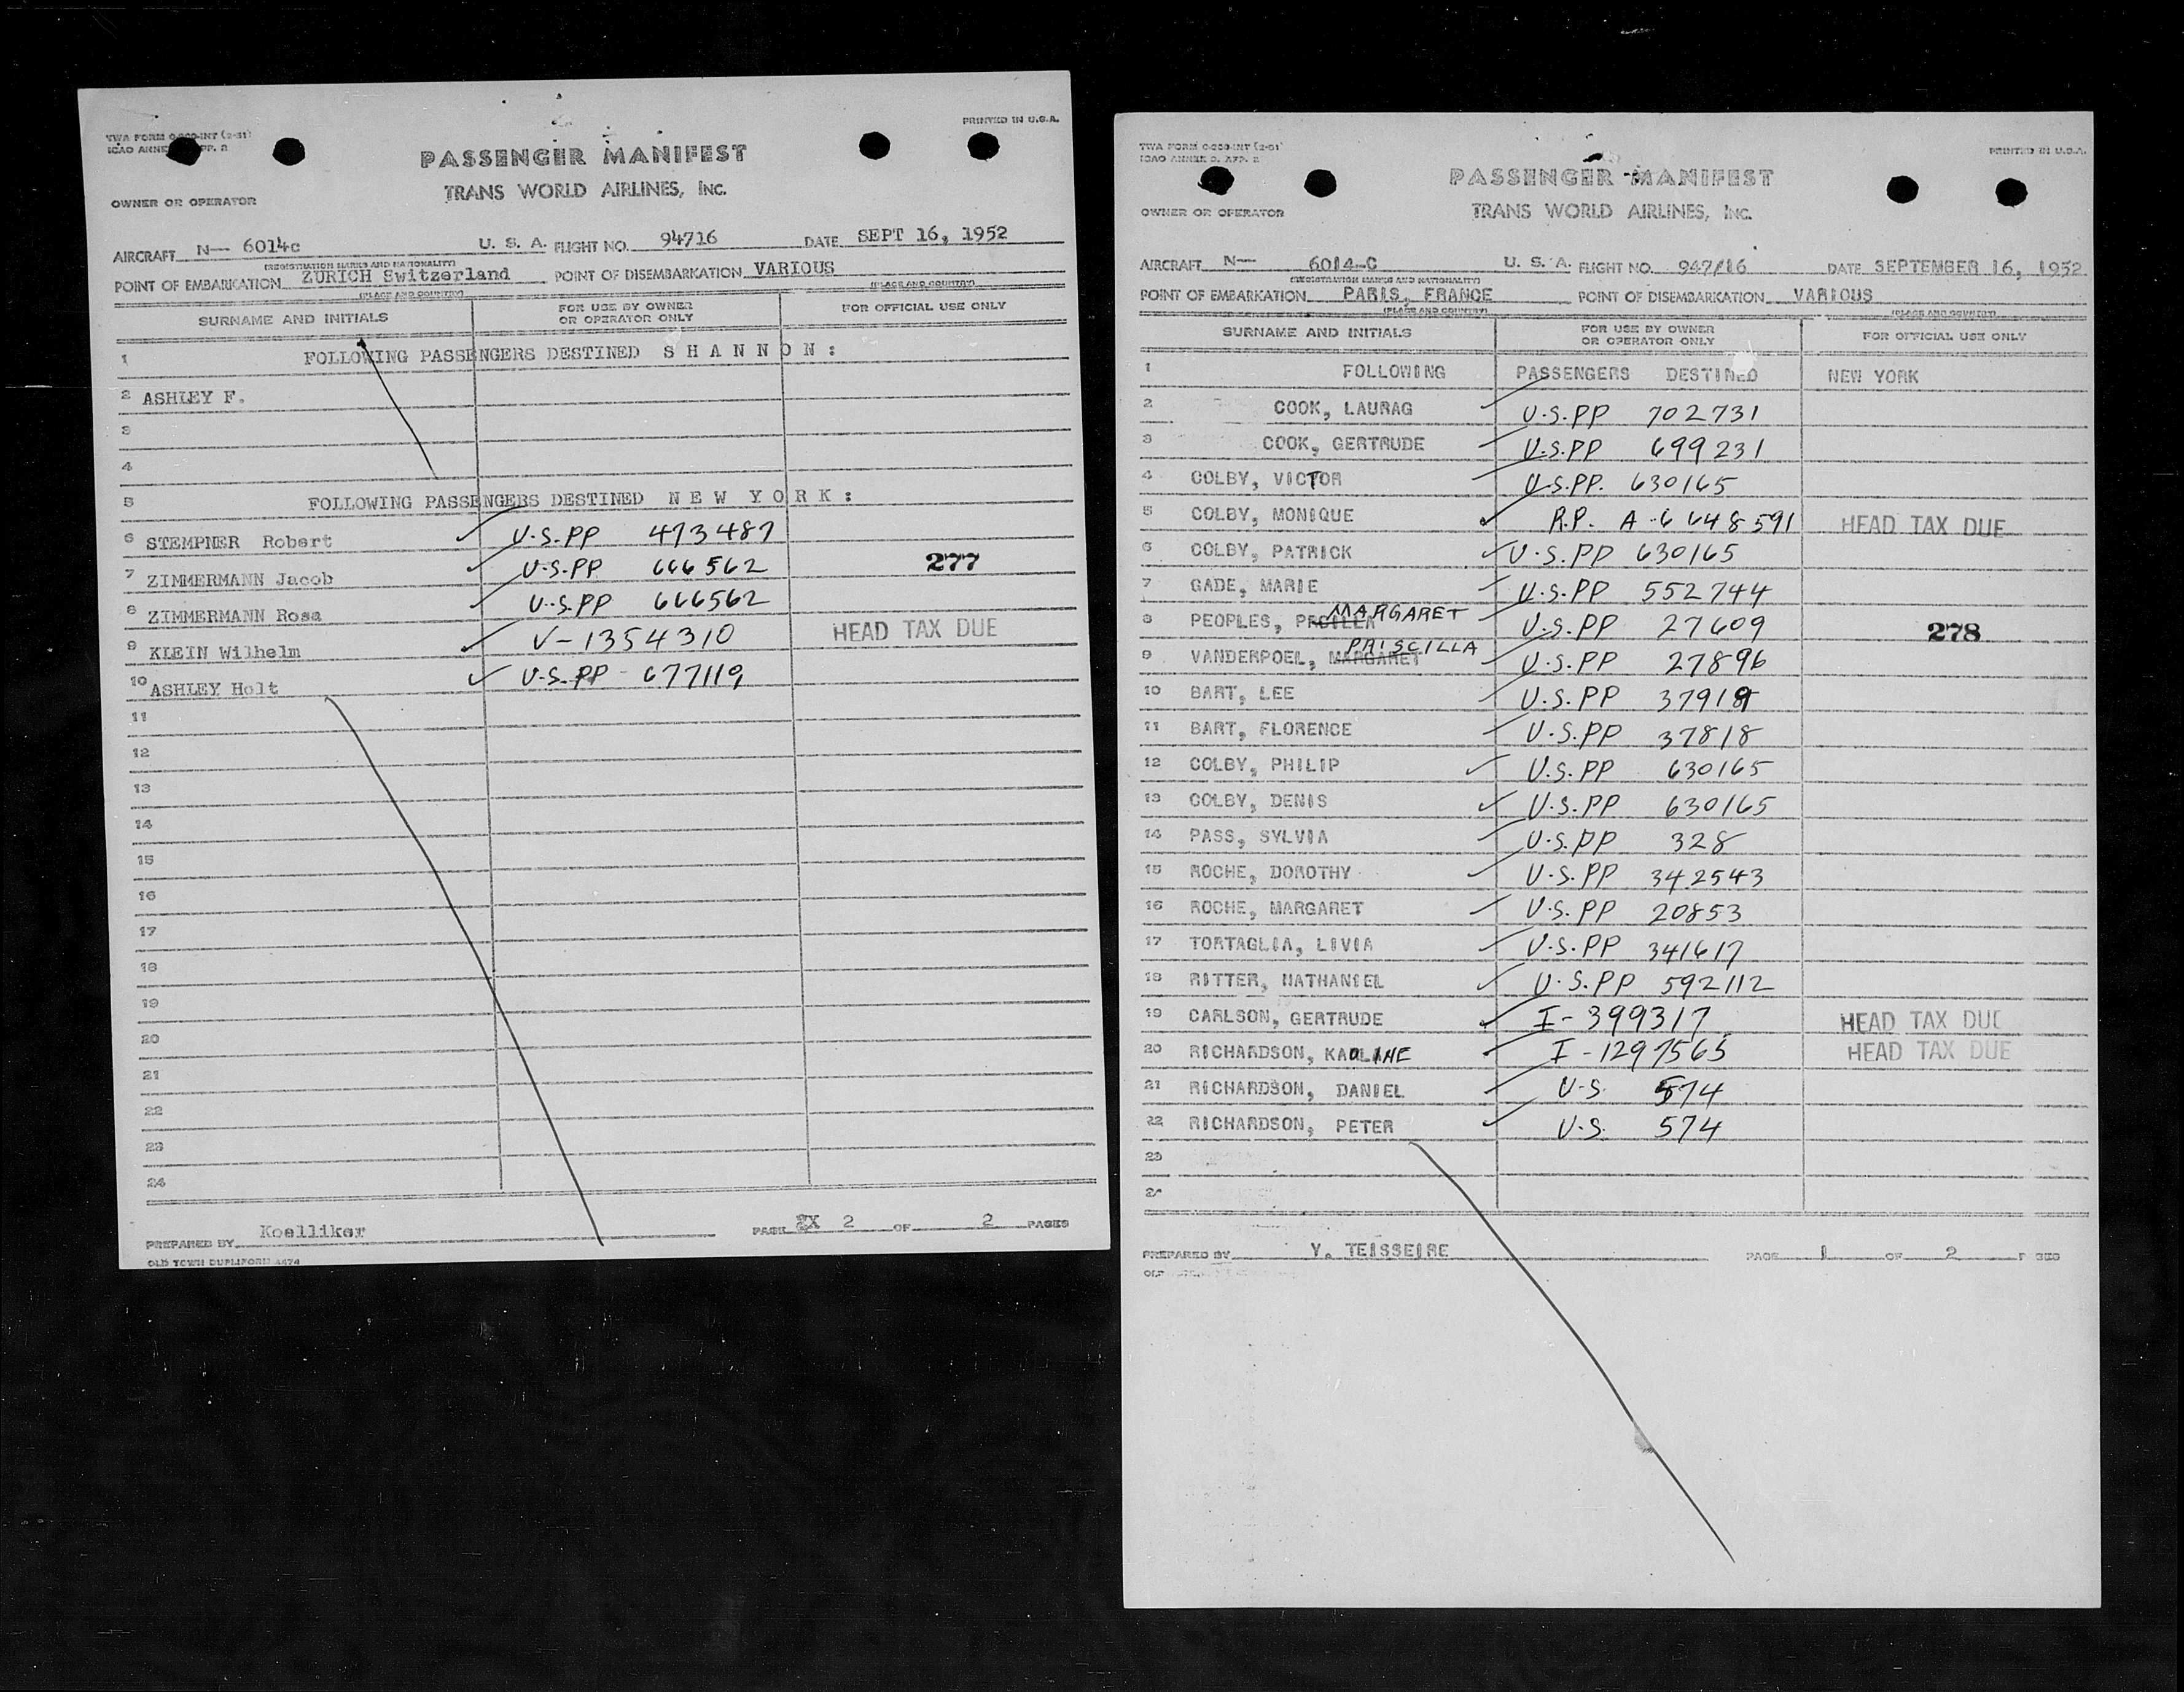 TWA FORM O-200-INT (2-51)
ICAO ANNE PP. 2
PRINTED IN U.S.A.
PASSENGER MANIFEST
TRANS WORLD AIRLINES, INC.
OWNER OR OPERATOR
AIRCRAFT N— 6014c U. S. A. FLIGHT NO. 94716 DATE SEPT 16, 1952
(REGISTRATION MARKS AND NATIONALITY)
POINT OF EMBARKATION ZURICH Switzerland POINT OF DISEMBARKATION VARIOUS
(PLACE AND COUNTRY) (PLACE AND COUNTRY)
SURNAME AND INITIALS FOR USE BY OWNER OR OPERATOR ONLY FOR OFFICIAL USE ONLY
1 FOLLOWING PASSENGERS DESTINED S H A N N O N :
2 ASHLEY F.
3
4
5 FOLLOWING PASSENGERS DESTINED N E W Y O R K :
6 STEMPNER Robert U.S.PP 473487
7 ZIMMERMANN Jacob U.S.PP 666562 277
8 ZIMMERMANN Rosa U.S.PP 666562
9 KLEIN Wilhelm V-1354310 HEAD TAX DUE
10 ASHLEY Holt U.S.PP - 677119
11
12
13
14
15
16
17
18
19
20
21
22
23
24
PREPARED BY Koelliker PAGE 2 OF 2 PAGES
OLD TOWN DUPLIFORM 4474
TWA FORM O-200-INT (2-51)
ICAO ANNEX 9. APP. 2
PRINTED IN U.S.A.
PASSENGER MANIFEST
TRANS WORLD AIRLINES, INC.
OWNER OR OPERATOR
AIRCRAFT N— 6014-C U. S. A. FLIGHT NO. 947/16 DATE SEPTEMBER 16, 1952
(REGISTRATION MARKS AND NATIONALITY)
POINT OF EMBARKATION PARIS, FRANCE POINT OF DISEMBARKATION VARIOUS
(PLACE AND COUNTRY) (PLACE AND COUNTRY)
SURNAME AND INITIALS FOR USE BY OWNER OR OPERATOR ONLY FOR OFFICIAL USE ONLY
1 FOLLOWING PASSENGERS DESTINED NEW YORK
2 COOK, LAURAG U.S.PP 702731
3 COOK, GERTRUDE U.S.PP 699231
4 COLBY, VICTOR U.S.PP. 630165
5 COLBY, MONIQUE R.P. A-6648591 HEAD TAX DUE
6 COLBY, PATRICK U.S.PP 630165
7 GADE, MARIE U.S.PP 552744
8 PEOPLES, MARGARET U.S.PP 27609 278
9 VANDERPOEL, MARGARET PRISCILLA U.S.PP 27896
10 BART, LEE U.S.PP 37919
11 BART, FLORENCE U.S.PP 37818
12 COLBY, PHILIP U.S.PP 630165
13 COLBY, DENIS U.S.PP 630165
14 PASS, SYLVIA U.S.PP 328
15 ROCHE, DOROTHY U.S.PP 342543
16 ROCHE, MARGARET U.S.PP 20853
17 TORTAGLIA, LIVIA U.S.PP 341617
18 RITTER, NATHANIEL U.S.PP 592112
19 CARLSON, GERTRUDE I-399317 HEAD TAX DUE
20 RICHARDSON, KAOLINE I-1297565 HEAD TAX DUE
21 RICHARDSON, DANIEL U.S. 574
22 RICHARDSON, PETER U.S. 574
23
PREPARED BY Y. TEISSEIRE PAGE 1 OF 2